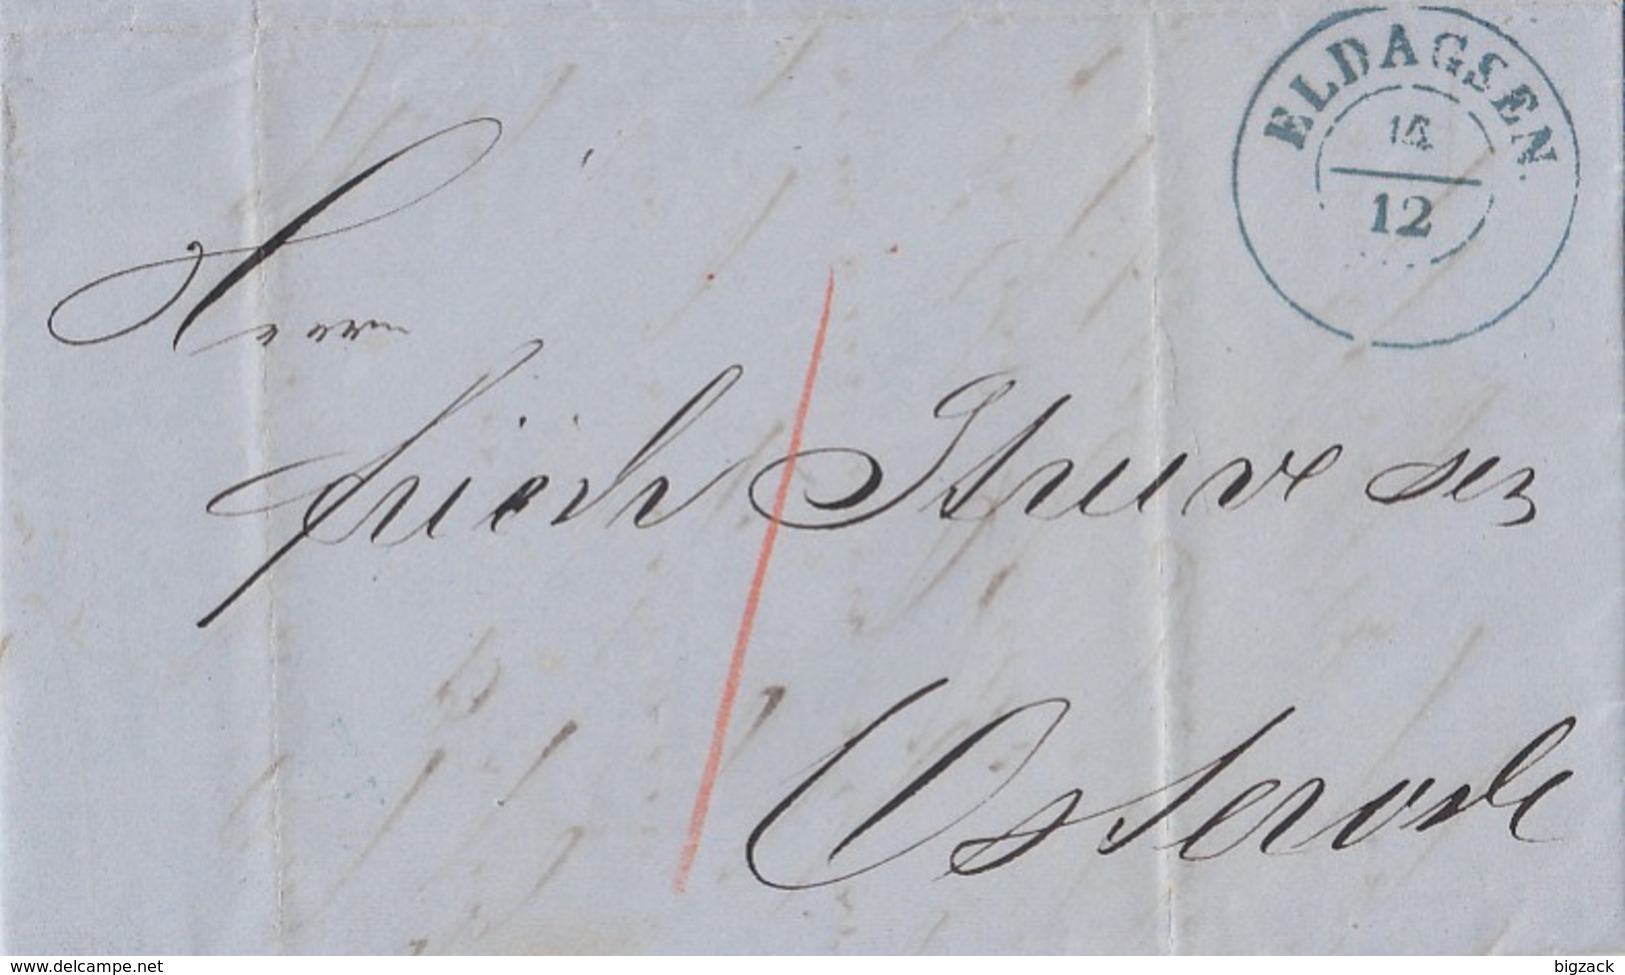 ELDAGSEN.
14
12
Herrn
Friedr Struve sen
Osterode
www.delcampe.net
bigzack